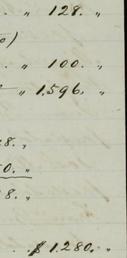 " 128. "
)
. " 100. "
" " 1.596. "
8. "
0. "
8. "
. . $ 1.280. "